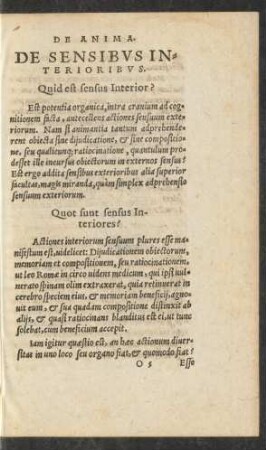 DE ANIMA.
DE SENSIBVS IN-
TERIORIBVS.
Quid est sensus Interior?
Est potentia organica, intra cranium ad cog-
nitionem facta, antecellens actiones sensuum exte-
riorum. Nam si animantia tantum adprehende-
rent obiecta sine dijudicatione, & sine compositio-
ne, seu qualicunq; ratiocinatione, quantulum pro-
desset ille incursus obiectorum in externos sensus?
Est ergo addita sensibus exterioribus alia superior
facultas, magis miranda, quàm simplex adprehensio
sensuum exteriorum.
Quot sunt sensus In-
teriores?
Actiones interiorum sensuum plures esse ma-
nifestum est, uidelicet: Dijudicationem obiectorum,
memoriam et compositionem, seu ratiocinationem,
ut leo Romæ in circo uidens medicum, qui ipsi uul-
nerato spinam olim extraxerat, quia retinuerat in
cerebro speciem eius, & memoriam beneficij, agno-
uit eum, & sua quadam compositione distinxit ab
alijs, & quasi ratiocinans blanditus est ei, ut tunc
solebat, cum beneficium accepit.
Iam igitur quæstio est, an hæc actionum diuer-
sitas in uno loco seu organo fiat, & quomodo fiat?
O 5 Esse